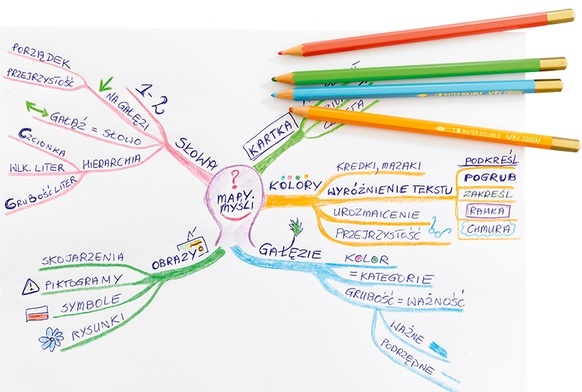 PORZĄDEK
PRZEJRZYSTOŚĆ
1-2
NA GAŁĘZI
GAŁĄŹ = SŁOWO
CZCIONKA
WLK. LITER
HIERARCHIA
GRUBOŚĆ LITER
SŁOWA
KARTKA
?
MAPY
MYŚLI
KOLORY
KREDKI, MAZAKI
WYRÓŻNIENIE TEKSTU
PODKREŚL
POGRUB
ZAKREŚL
RAMKA
CHMURA
UROZMAICENIE
PRZEJRZYSTOŚĆ
GAŁĘZIE
KOLOR
= KATEGORIE
GRUBOŚĆ = WAŻNOŚĆ
WAŻNE
PODRZĘDNE
OBRAZY
SKOJARZENIA
PIKTOGRAMY
SYMBOLE
RYSUNKI
WATER SOLUBLE
WATER SOLUBLE